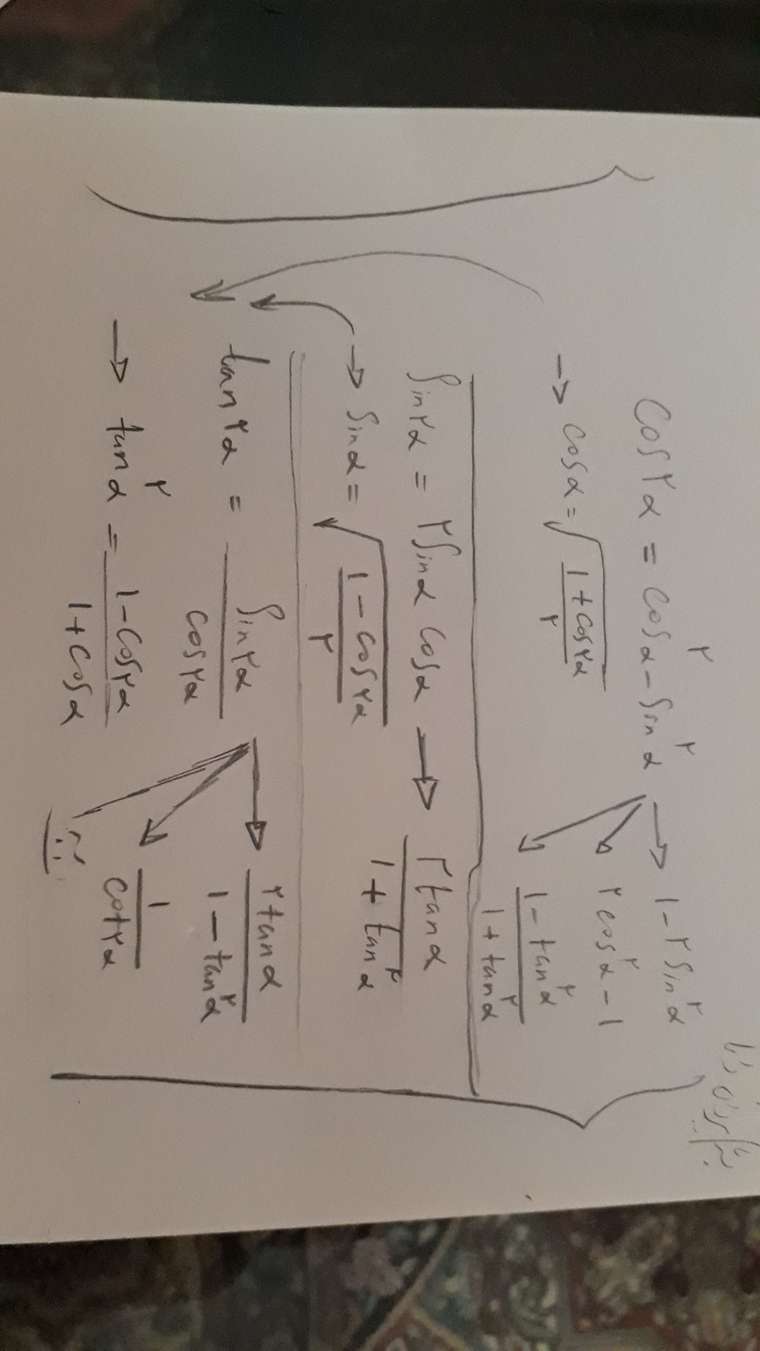 cos۲α = cos²α - sin²α → 1 - ۲sin²α
→ ۲cos²α - 1
→ cosα = √((1 + cos۲α)/۲) → (1 - tan²α)/(1 + tan²α)
sin۲α = ۲sinα cosα → ۲tanα/(1 + tan²α)
→ sinα = √((1 - cos۲α)/۲)
tan۲α = sin۲α/cos۲α → ۲tanα/(1 - tan²α)
→ 1/cot۲α
→ tan²α = (1 - cos۲α)/(1 + cosα)